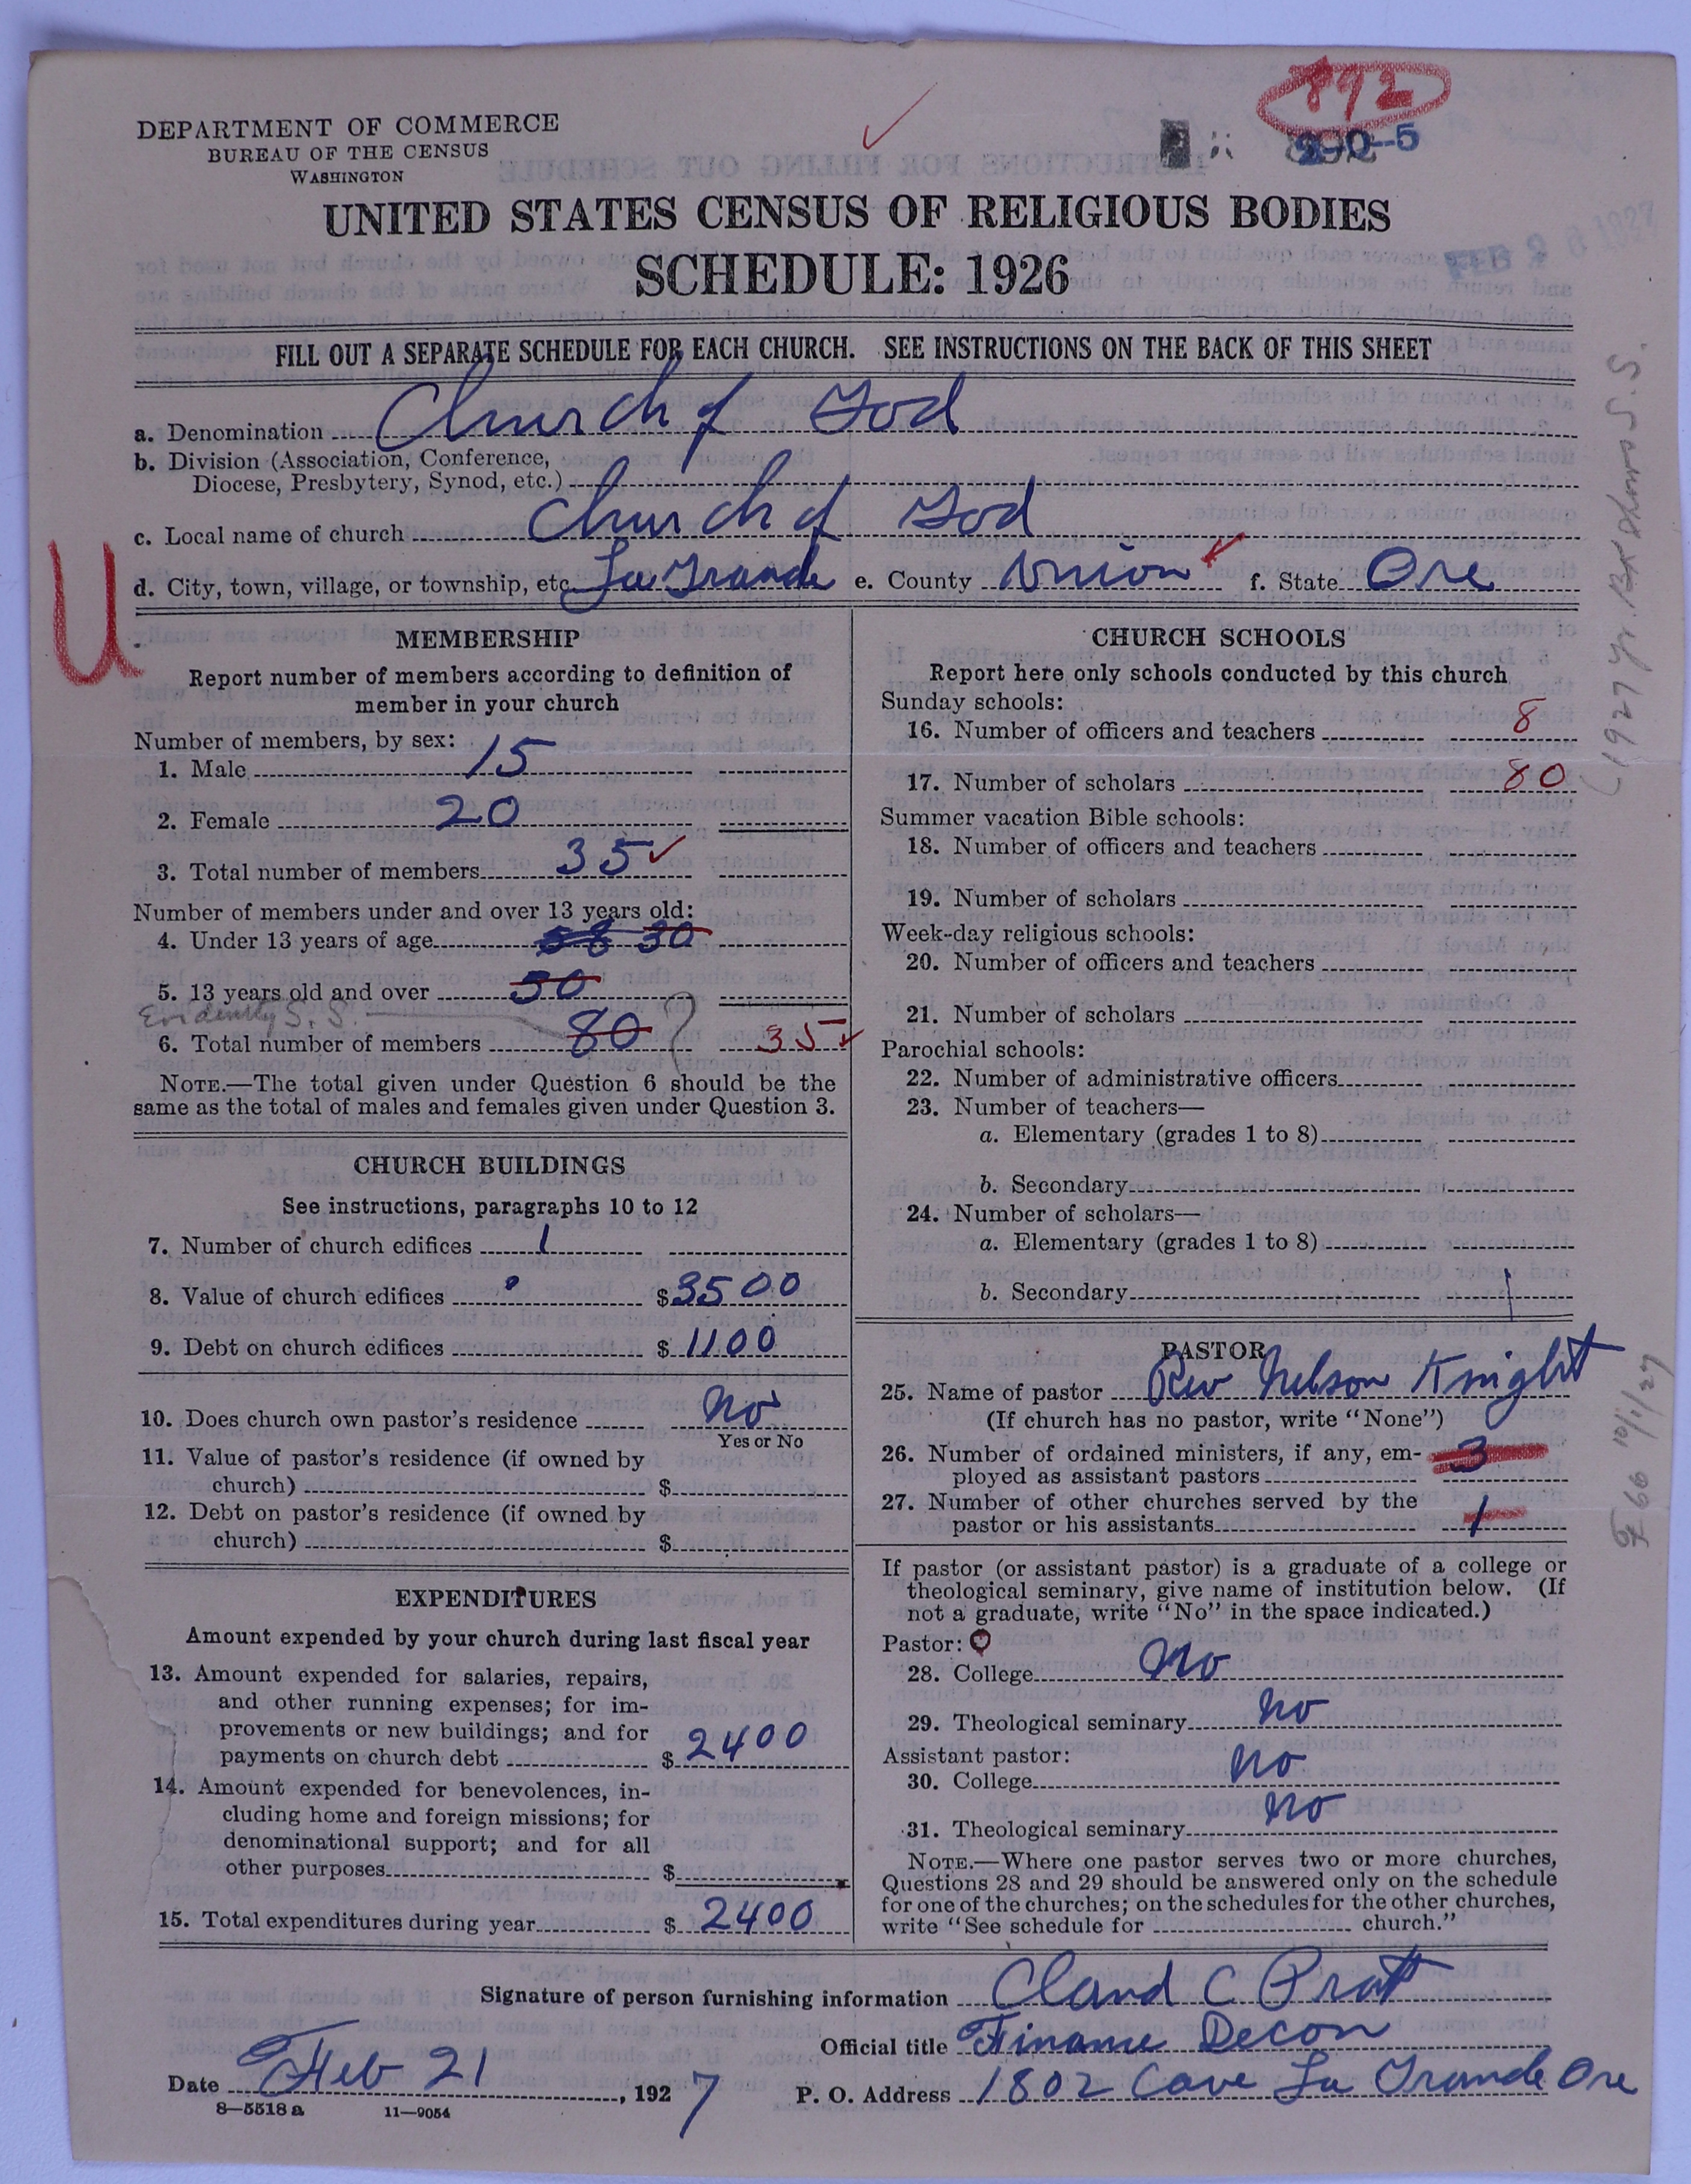 892
DEPARTMENT OF COMMERCE
BUREAU OF THE CENSUS
WASHINGTON
UNITED STATES CENSUS OF RELIGIOUS BODIES
SCHEDULE: 1926
FILL OUT A SEPARATE SCHEDULE FOR EACH CHURCH. SEE INSTRUCTIONS ON THE BACK OF THIS SHEET
a. Denomination Church of God
b. Division (Association, Conference,
Diocese, Presbytery, Synod, etc.)
c. Local name of church Church of God
d. City, town, village, or township, etc. La Grande e. County Union f. State Ore
U
MEMBERSHIP
Report number of members according to definition of
member in your church
Number of members, by sex:
1. Male 15
2. Female 20
3. Total number of members 35
Number of members under and over 13 years old:
4. Under 13 years of age 58 30
5. 13 years old and over 50
Evidently S. S.
6. Total number of members 80 ? 35
NOTE.—The total given under Question 6 should be the
same as the total of males and females given under Question 3.
CHURCH BUILDINGS
See instructions, paragraphs 10 to 12
7. Number of church edifices 1
8. Value of church edifices $ 3500
9. Debt on church edifices $ 1100
10. Does church own pastor's residence No
Yes or No
11. Value of pastor's residence (if owned by
church) $
12. Debt on pastor's residence (if owned by
church) $
EXPENDITURES
Amount expended by your church during last fiscal year
13. Amount expended for salaries, repairs,
and other running expenses; for im-
provements or new buildings; and for
payments on church debt $ 2400
14. Amount expended for benevolences, in-
cluding home and foreign missions; for
denominational support; and for all
other purposes $
15. Total expenditures during year $ 2400
CHURCH SCHOOLS
Report here only schools conducted by this church
Sunday schools:
16. Number of officers and teachers 8
17. Number of scholars 80
Summer vacation Bible schools:
18. Number of officers and teachers
19. Number of scholars
Week-day religious schools:
20. Number of officers and teachers
21. Number of scholars
Parochial schools:
22. Number of administrative officers
23. Number of teachers—
a. Elementary (grades 1 to 8)
b. Secondary
24. Number of scholars—
a. Elementary (grades 1 to 8)
b. Secondary
PASTOR
25. Name of pastor Rev Nelson Knight
(If church has no pastor, write "None")
26. Number of ordained ministers, if any, em-
ployed as assistant pastors 3
27. Number of other churches served by the
pastor or his assistants 1
If pastor (or assistant pastor) is a graduate of a college or
theological seminary, give name of institution below. (If
not a graduate, write "No" in the space indicated.)
Pastor:
28. College No
29. Theological seminary No
Assistant pastor:
30. College No
31. Theological seminary No
NOTE.—Where one pastor serves two or more churches,
Questions 28 and 29 should be answered only on the schedule
for one of the churches; on the schedules for the other churches,
write "See schedule for church."
Signature of person furnishing information Claud C Pratt
Official title Finance Decon
Date Feb 21, 1927 P. O. Address 1802 Cove La Grande Ore
8—5518 a 11—9054